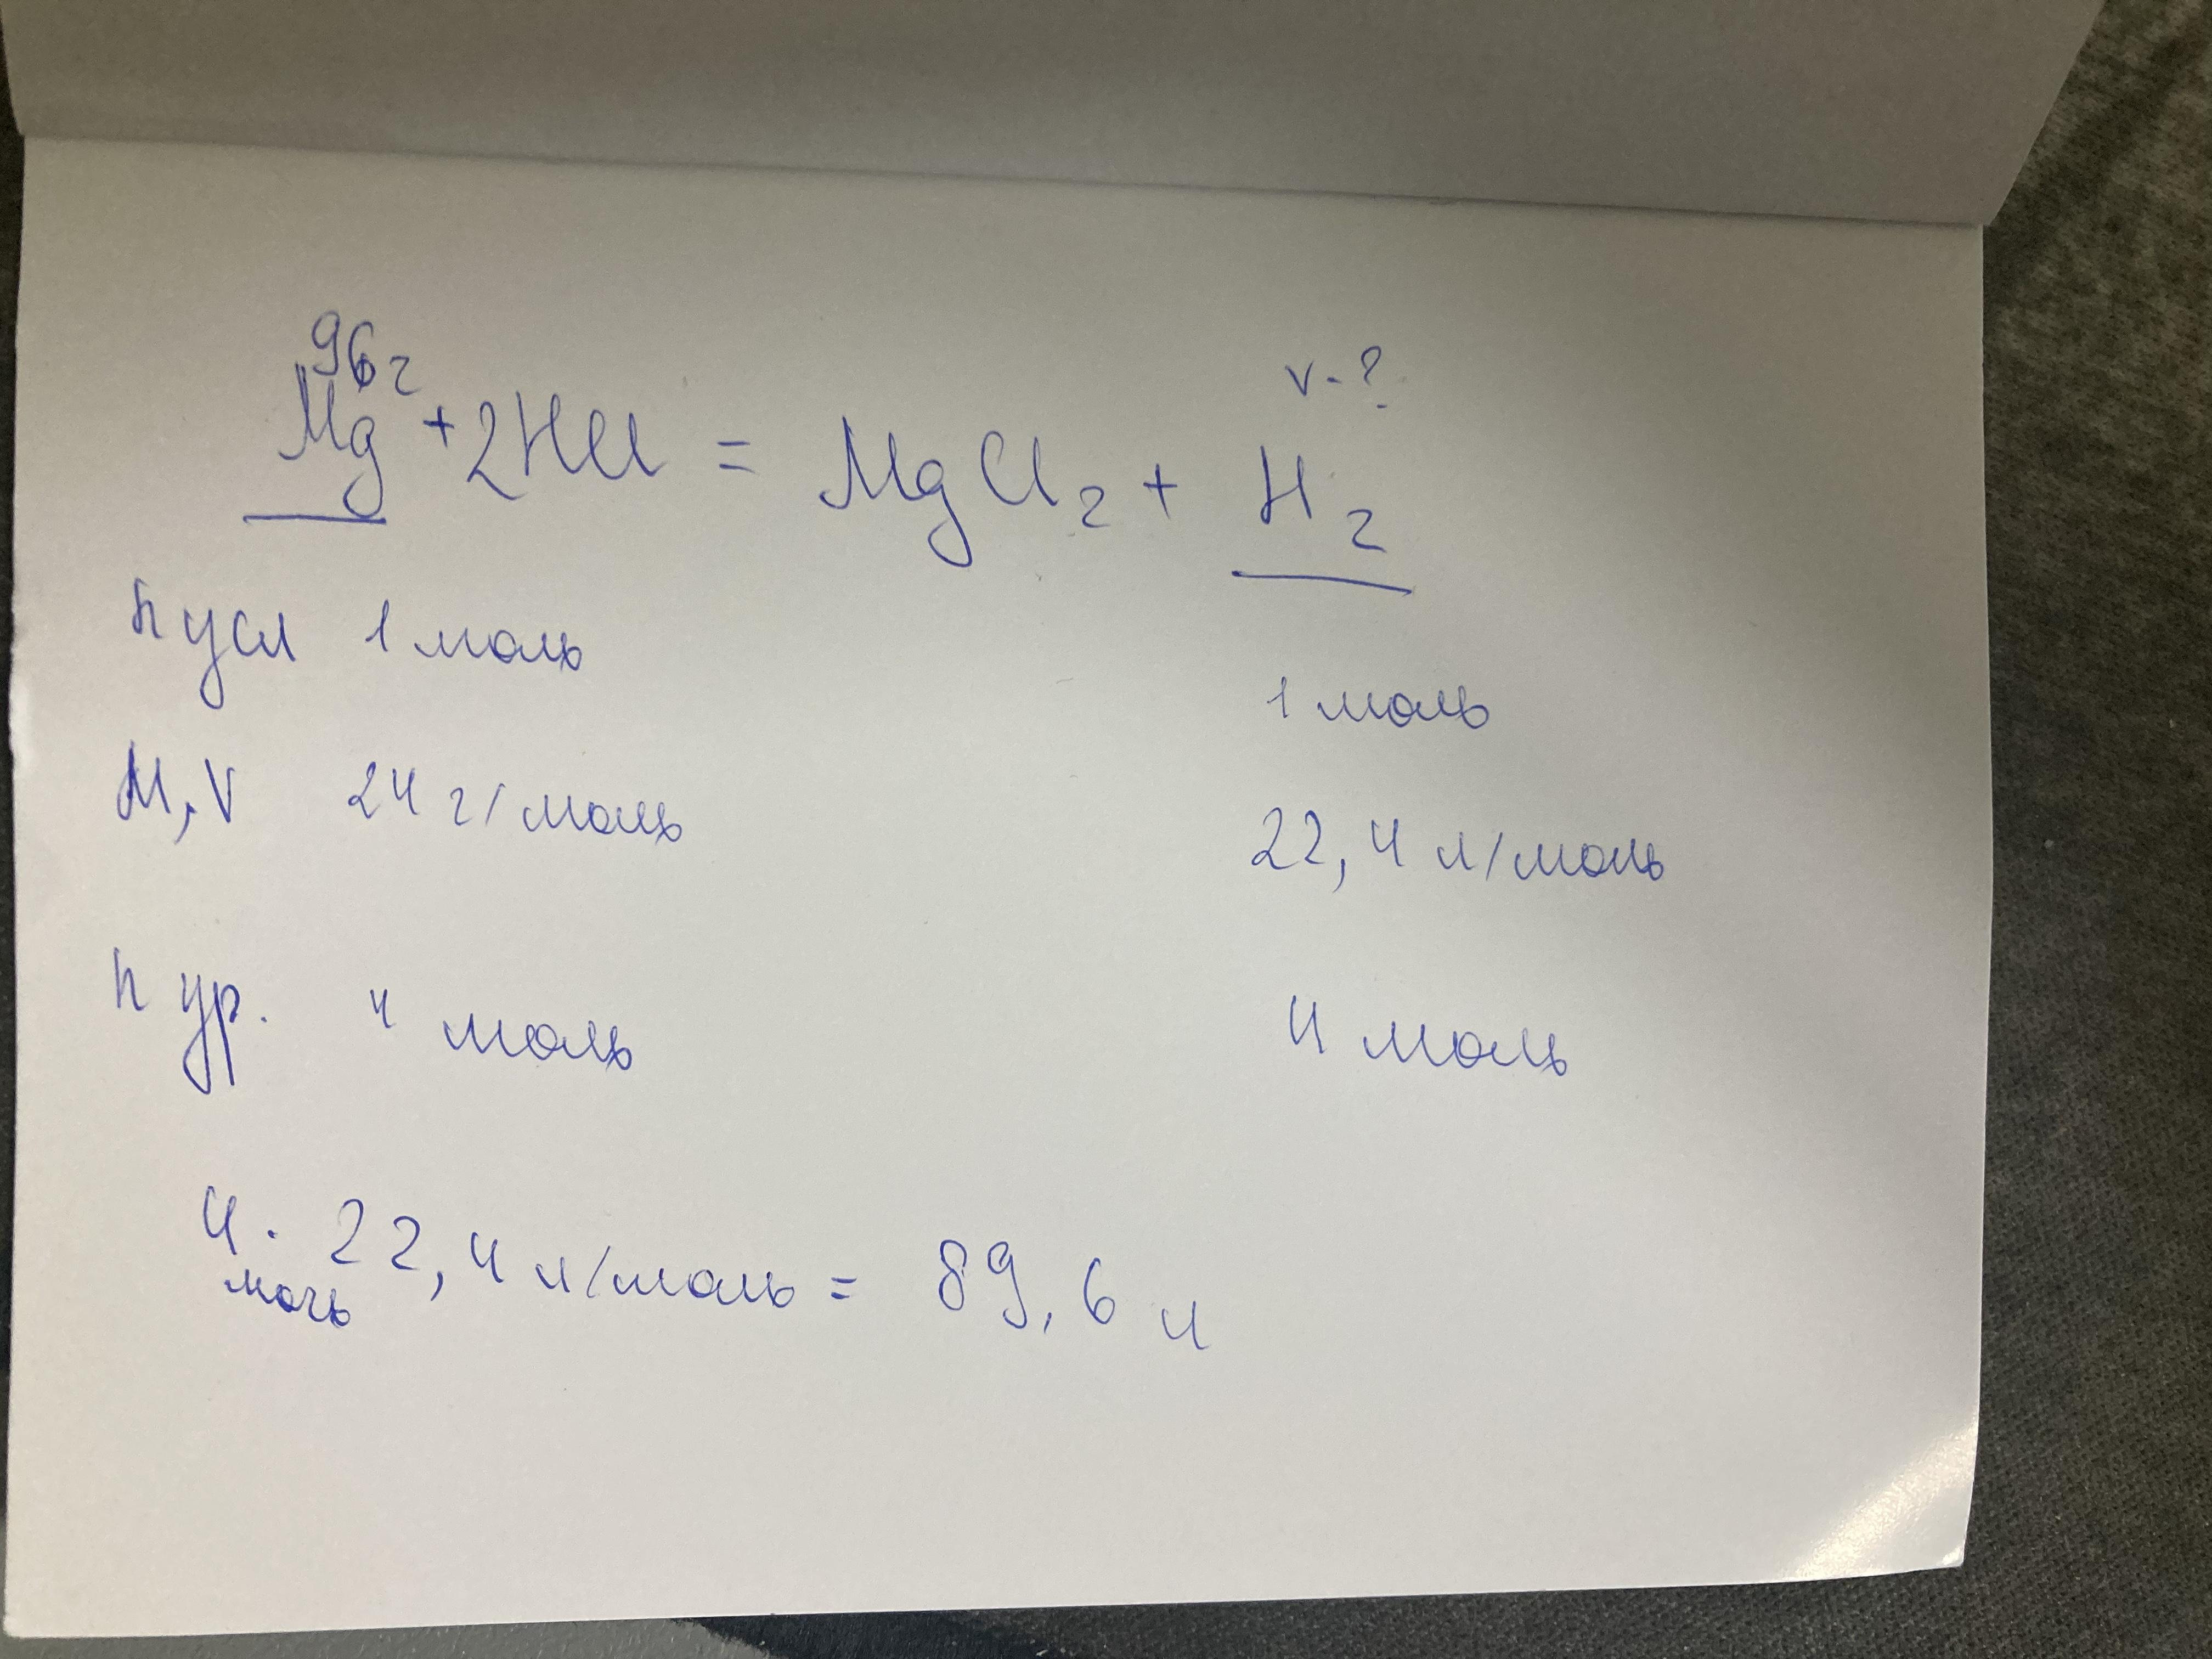 96г V-?
Mg + 2HCl = MgCl2 + H2
n усл 1 моль 1 моль
M, V 24 г/моль 22,4 л/моль
n ур. 4 моль 4 моль
4 моль · 22,4 л/моль = 89,6 л